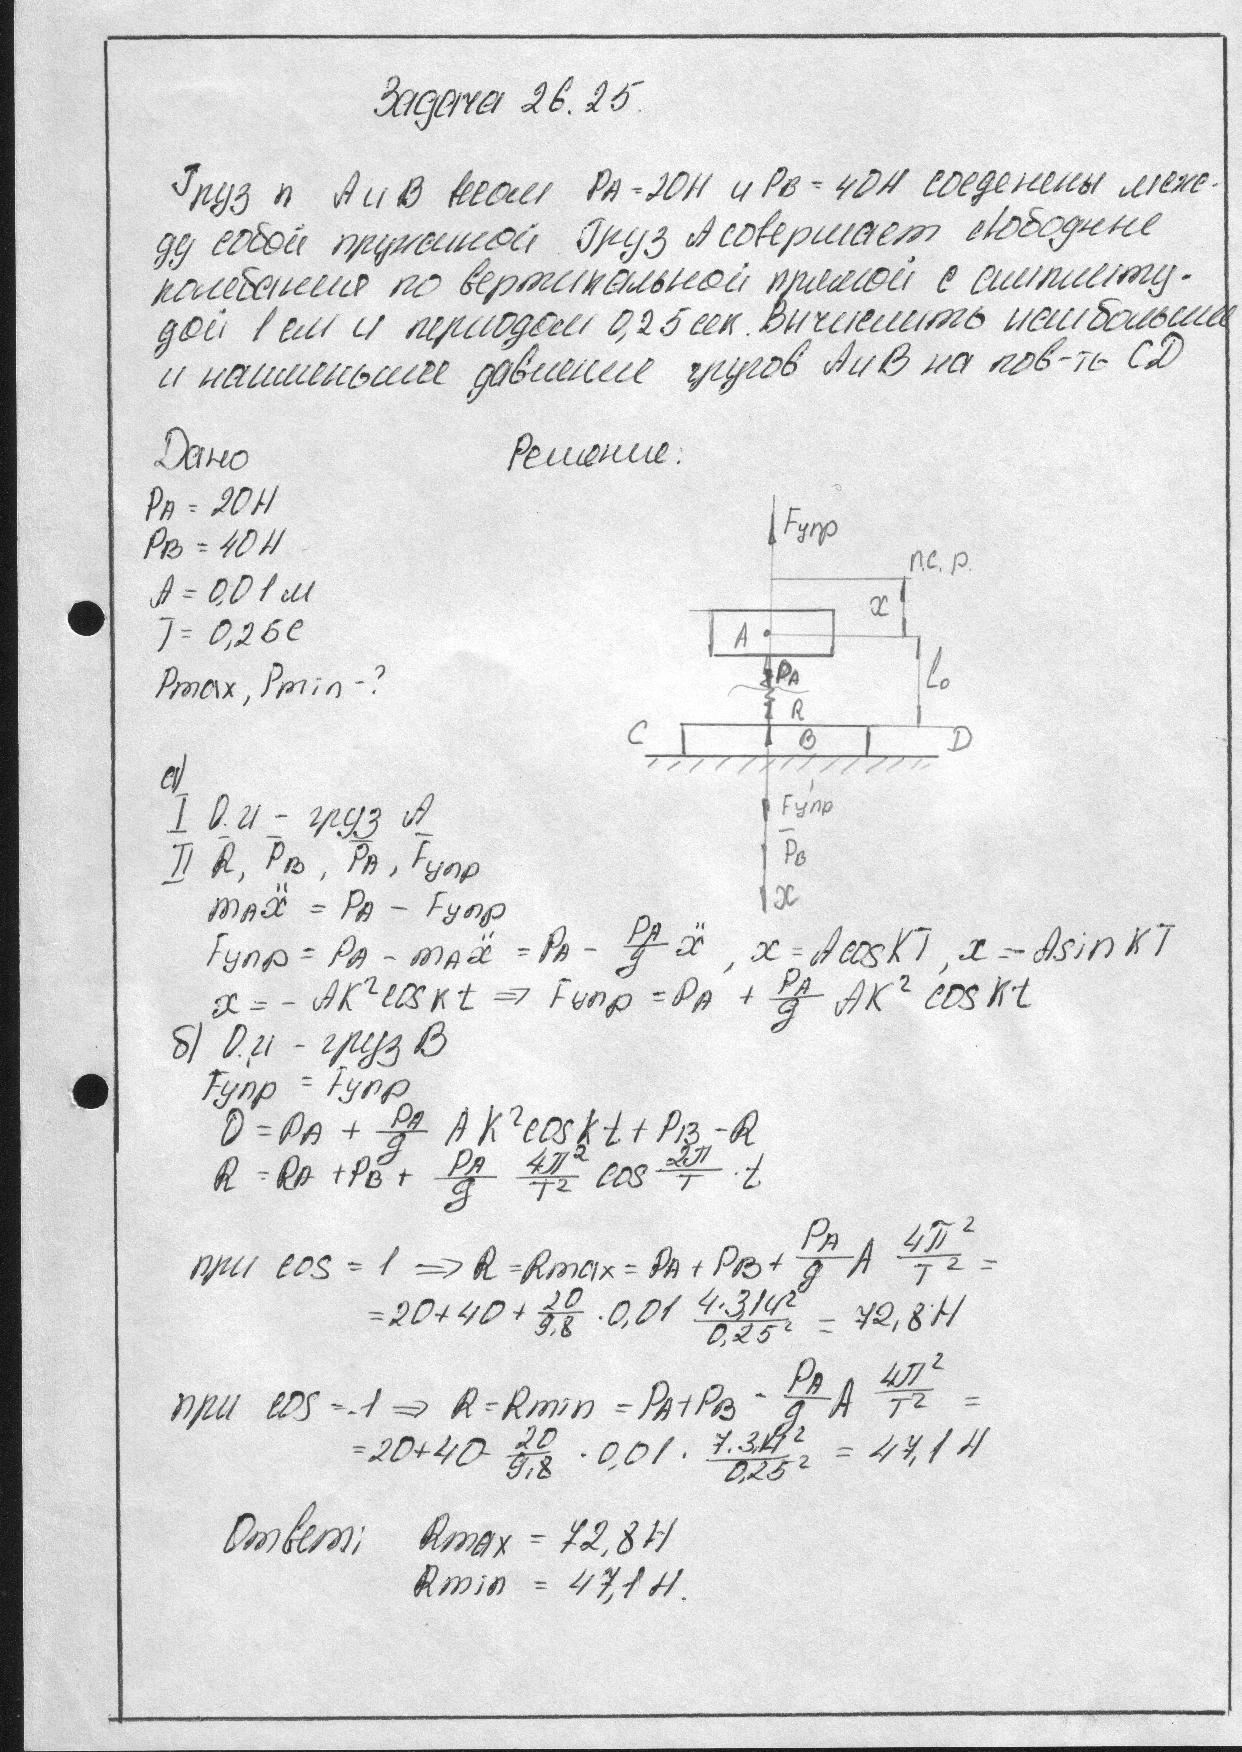 Задача 26.25.
Груз п А и В весом PA = 20Н и PB = 40Н соеденены меж-
ду собой пружиной Груз А совершает свободные
колебания по вертикальной прямой с амплиту-
дой 1 см и периодом 0,25 сек. Вичислить наибольшее
и наименьшее давление грузов А и В на пов-ть CD
Дано
Решение:
PA = 20Н
PB = 40Н
A = 0,01 м
T = 0,25с
Pmax, Pmin - ?
Fупр
п.с.р.
x
A
PA
l₀
R
C
B
D
Fупр
P̅B
x
а)
I О.и - груз А
II R̅, P̅B, P̅A, F̅упр
mAẍ = PA - Fупр
Fупр = PA - mAẍ = PA - PA/g ẍ, x = AcosKT, x = -AsinKT
x = - AK² cosKt ⇒ Fупр = PA + PA/g AK² cosKt
б) О.и - груз В
Fупр = Fупр
0 = PA + PA/g AK² cosKt + PB - R
R = RA + PB + PA/g 4π²/T² cos 2π/T · t
при cos = 1 ⇒ R = Rmax = PA + PB + PA/g A 4π²/T² =
= 20 + 40 + 20/9,8 · 0,01 4·3,14²/0,25² = 72,8Н
при cos = -1 ⇒ R = Rmin = PA + PB - PA/g A 4π²/T² =
= 20 + 40 - 20/9,8 · 0,01 · 7·3,14²/0,25² = 47,1 Н
Ответ: Rmax = 72,8Н
Rmin = 47,1 Н.